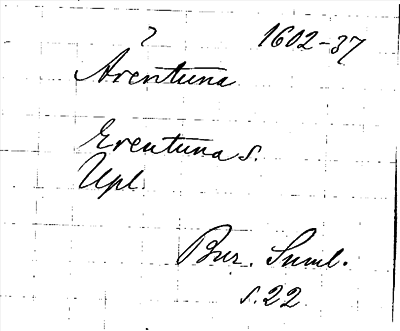 ? 1602-37
Ärentuna
Erentuna s.
Upl.
Bur. Suml.
s. 22